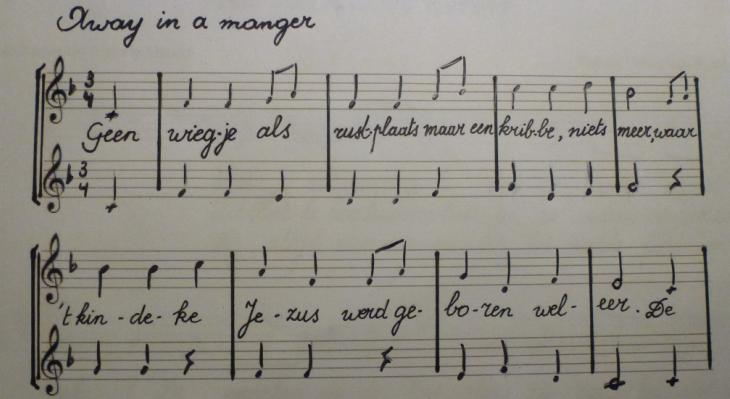 Away in a manger
3 4
Geen wieg-je als rust-plaats maar een krib-be, niets meer, waar
3 4
't kin - de - ke Je - zus werd ge- bo-ren wel- eer. De